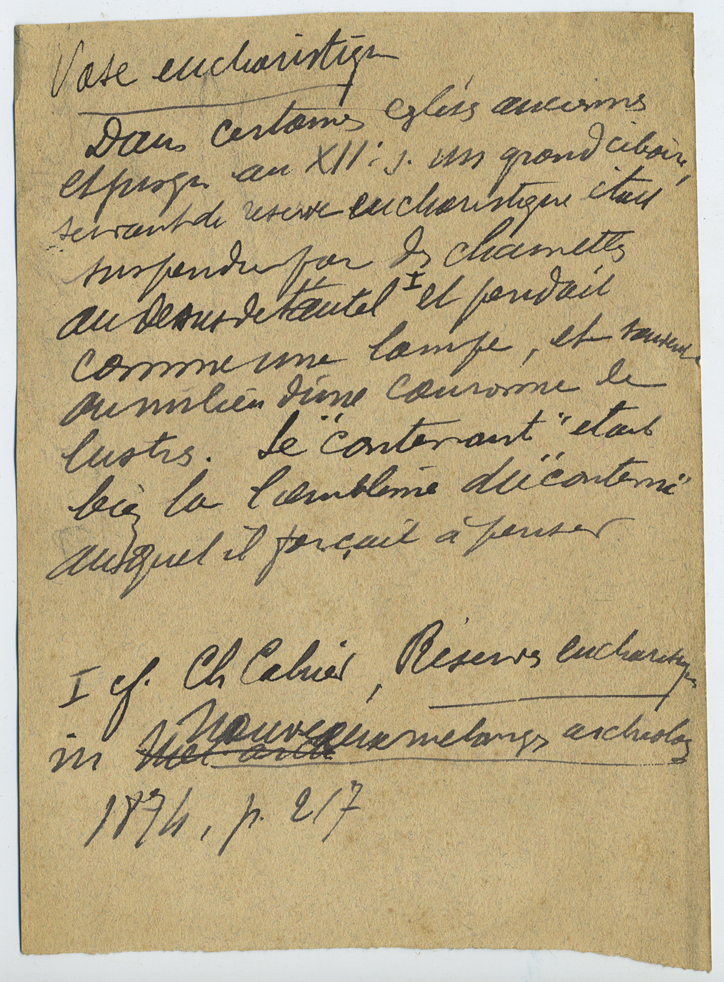 Vase eucharistique
Dans certaines eglises anciennes
et jusqu'au XII: s. un grand ciboire,
servant de reserve eucharistique était
suspendu par des chainettes
au dessus de l'autel I et pendait
comme une lampe, et souvent
au milieu d'une couronne de
lustres. Le "contenant" etait
bien la l'emblème du "contenu"
auquel il forçait à penser
I cf. Ch Cahier, Réserves eucharistiques
in Nouveaux melanges archeolog
1874, p. 217